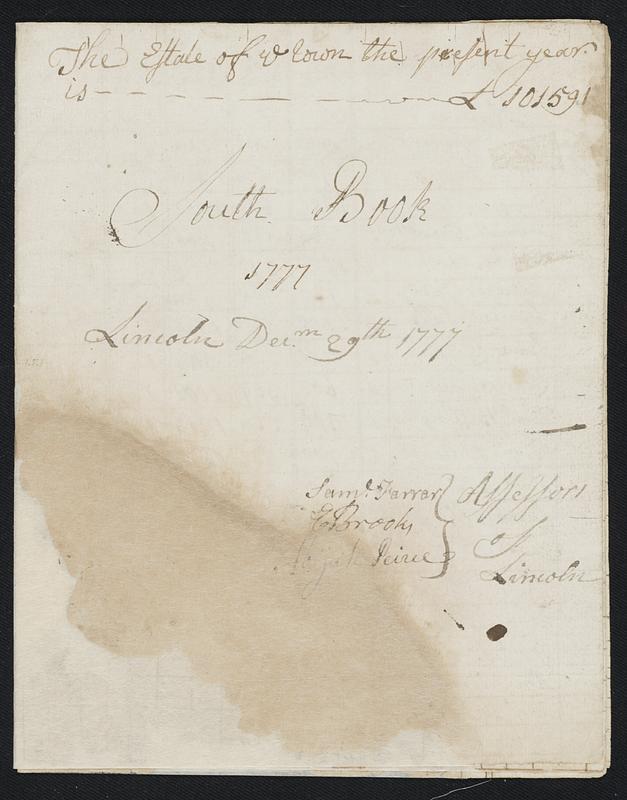 The Estate of ye Town the present year
is - - - - - - £ 101591
South Book
1777
Lincoln Decm 29th 1777
Saml Farrar } Assessors
E Brooks } of
Peirce } Lincoln